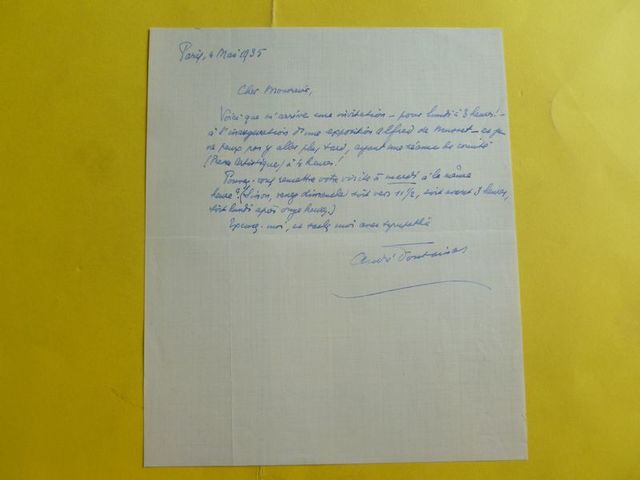 Paris, 4 Mai 1935
Cher Monsieur,
Voici que m'arrive une invitation – pour lundi à 3 heures! –
à l'inauguration d'une exposition Alfred de Musset – et je
ne peux pas y aller plus tard, ayant une séance de comité
(Presse Artistique) à 4 heures!
Pouvez-vous remettre votre visite à mardi à la même
heure? (Sinon, venez dimanche soit vers 11 1/2, soit avant 3 heures,
soit lundi après onze heures.)
Excusez-moi, et croyez moi avec sympathie
André Fontainas